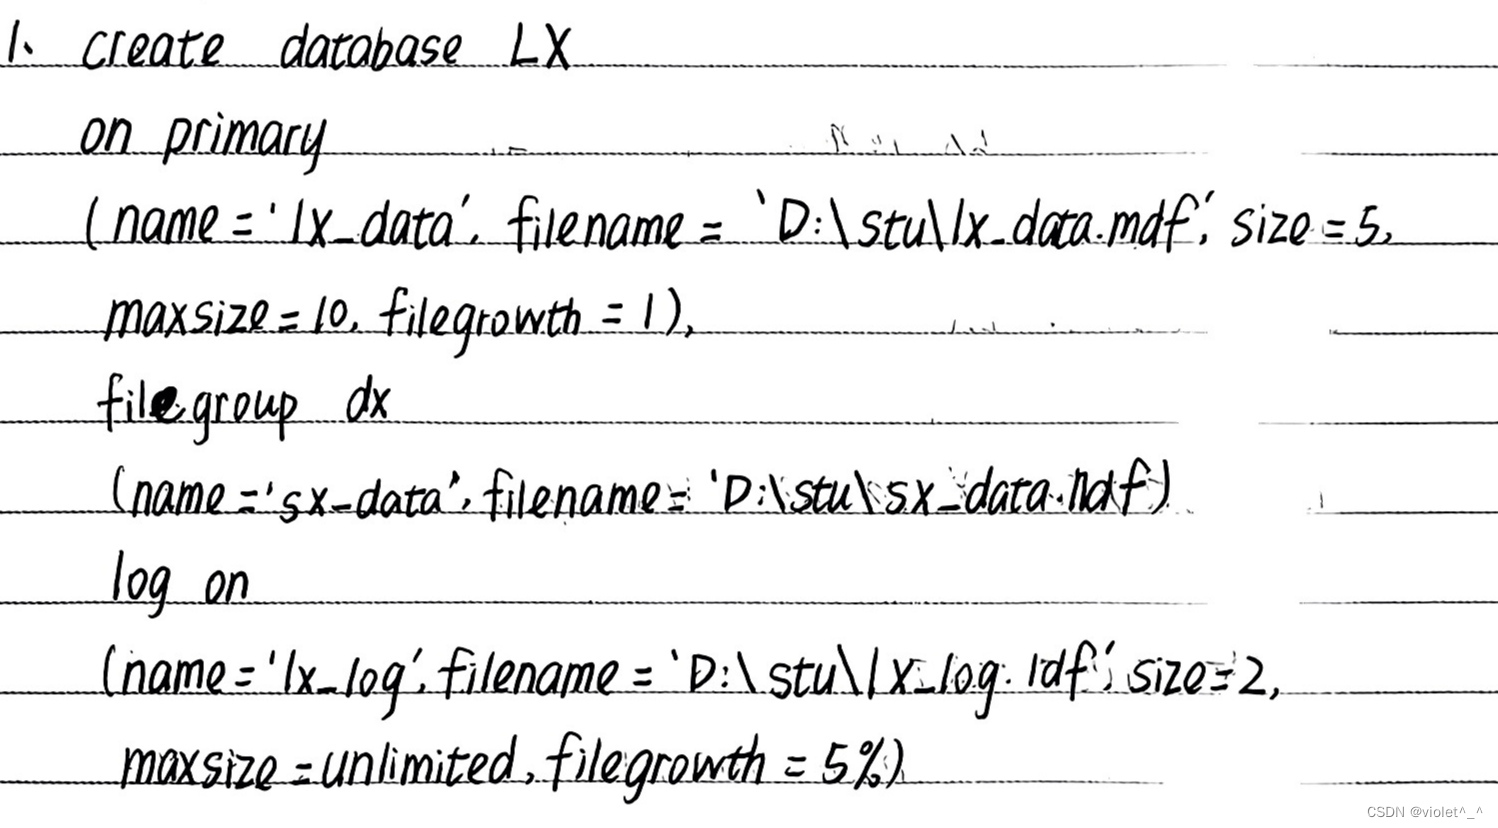 1、create database LX
on primary
(name='lx_data', filename='D:\stu\lx_data.mdf', size=5,
maxsize=10, filegrowth=1),
filegroup dx
(name='sx_data', filename='D:\stu\sx_data.ndf)
log on
(name='lx_log', filename='D:\stu\lx_log.ldf', size=2,
maxsize=unlimited, filegrowth=5%)
CSDN @violet^_^